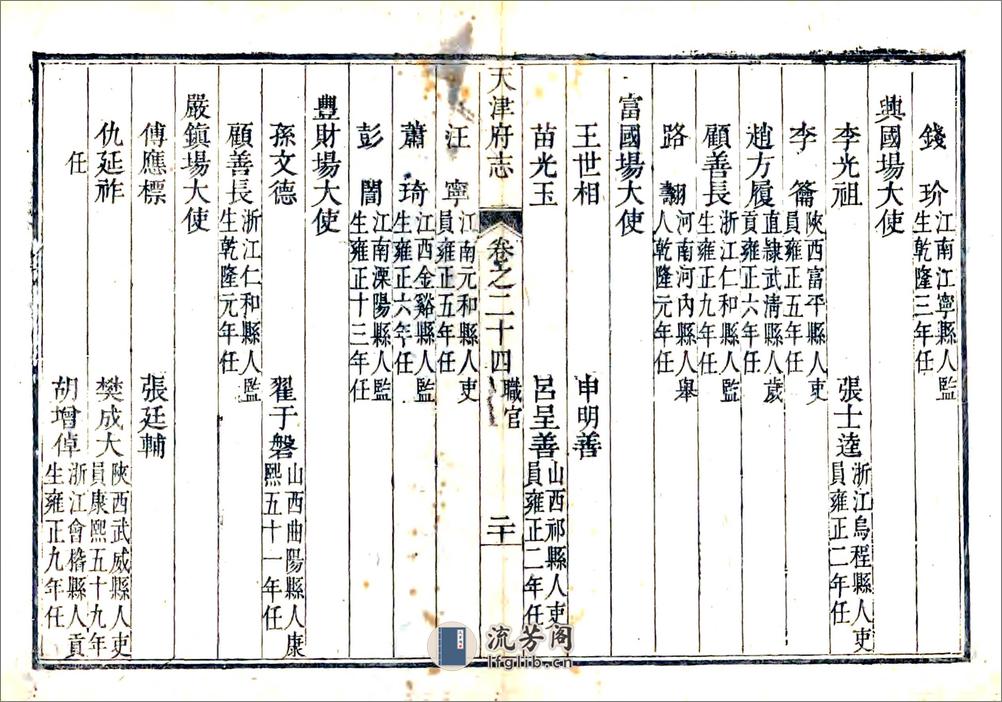 錢玠江南江寧縣人監生乾隆三年任
興國場大使
李光祖　張士逵浙江烏程縣人吏員雍正二年任
李籥陝西富平縣人吏員雍正五年任
趙方履直隸武淸縣人歲貢雍正六年任
顧善長浙江仁和縣人監生雍正九年任
路翿河南河內縣人舉人乾隆元年任
富國場大使
王世相　申明善
苗光玉　呂呈善山西祁縣人吏員雍正二年任
天津府志　卷之二十四　職官　二十
汪寧江南元和縣人吏員雍正五年任
蕭琦江西金谿縣人監生雍正六年任
彭誾江南溧陽縣人監生雍正十三年任
豐財場大使
孫文德　翟于磐山西曲陽縣人康熙五十一年任
顧善長浙江仁和縣人監生乾隆元年任
嚴鎮場大使
傅應標　張廷輔
仇延祚　樊成大陝西武威縣人吏員康熙五十九年
任　胡增倬浙江會稽縣人貢生雍正九年任
流芳阁
lfglib.cn